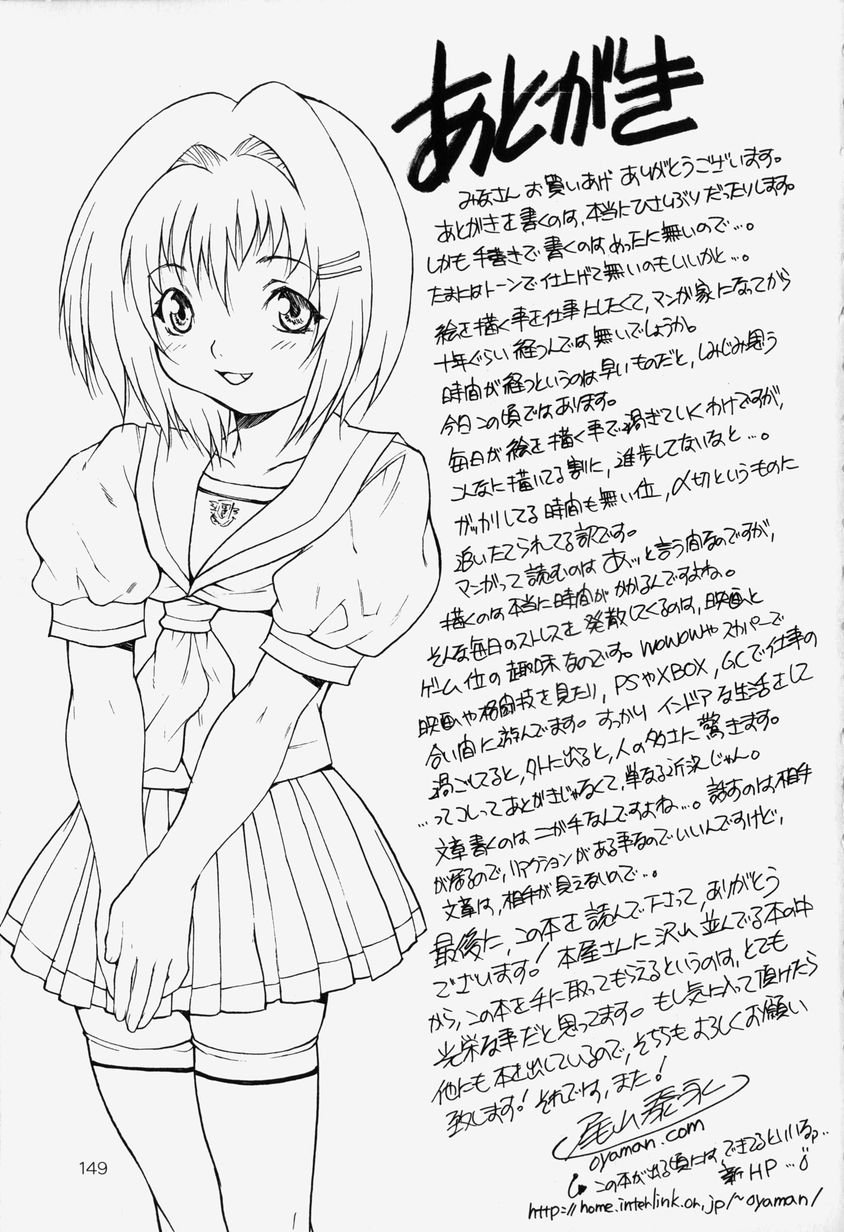 あとがき
みなさん お買いあげ ありがとうございます。
あとがきを書くのは、本当にひさしぶりだったりします。
しかも手書きで書くのは、めったに無いので…。
たまにはトーンで仕上げて無いのもいいかと…。
絵を描く事を仕事にしたくて、マンガ家になってから
十年ぐらい経つんでは無いでしょうか。
時間が経つというのは早いものだと、しみじみ思う
今日この頃ではあります。
毎日が絵を描く事で過ぎていくわけですが、
こんなに描いてる割に、進歩してないなと…。
ガッカリしてる時間も無い位、〆切というものに
追いたてられてる訳です。
マンガって読むのはあッと言う間なのですが、
描くのは本当に時間がかかるんですよね。
そんな毎日のストレスを発散してくるのは、映画と
ゲーム位の趣味なのです。WOWOWやスカパーで
映画や格闘技を見たり、PSやXBOX、GCで仕事の
合い間に遊んでます。すっかりインドアな生活をして
過ごしてると、外に出ると、人の多さに驚きます。
…ってコレってあとがきじゃなくて、単なる近況じゃん。
文章書くのはニガ手なんですよね…。話すのは、相手
が居るので、リアクションがある事なのでいいんですけど、
文章は、相手が見えないので…。
最後に、この本を読んで下さって、ありがとう
でざいます! 本屋さんに沢山並んでる本の中
から、この本を手に取ってもらえるというのは、とても
光栄な事だと思ってます。もし気に入って頂けたら
他にも本を出しているので、そちらもよろしくお願い
致します! それでは、また!
尾山泰永
oyaman.com
この本が出る頃には、できてるといいな…
新HP…
http://home.interlink.or.jp/~oyaman/
149